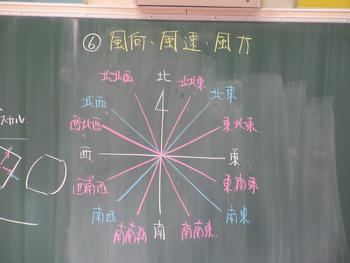 ⑥ 風向、風速、風力
北
北北西 北北東
北西 北東
西北西 東北東
西 東
西南西 東南東
南西 南東
南南西 南 南南東
スカル